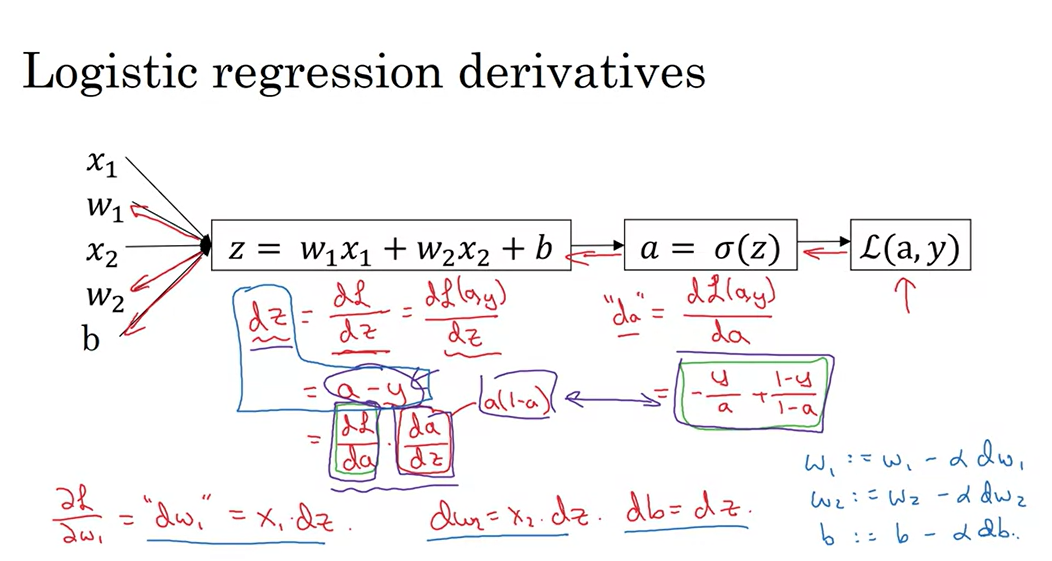 Logistic regression derivatives
x₁
w₁
x₂
w₂
b
z = w₁x₁ + w₂x₂ + b
a = σ(z)
ℒ(a, y)
dz = dℒ/dz = dℒ(a,y)/dz
= a - y
= dℒ/da · da/dz
a(1-a)
"da" = dℒ(a,y)/da
= -y/a + 1-y/1-a
∂ℒ/∂w₁ = "dw₁" = x₁·dz. dw₂ = x₂·dz. db = dz.
w₁ := w₁ - α dw₁
w₂ := w₂ - α dw₂
b := b - α db.